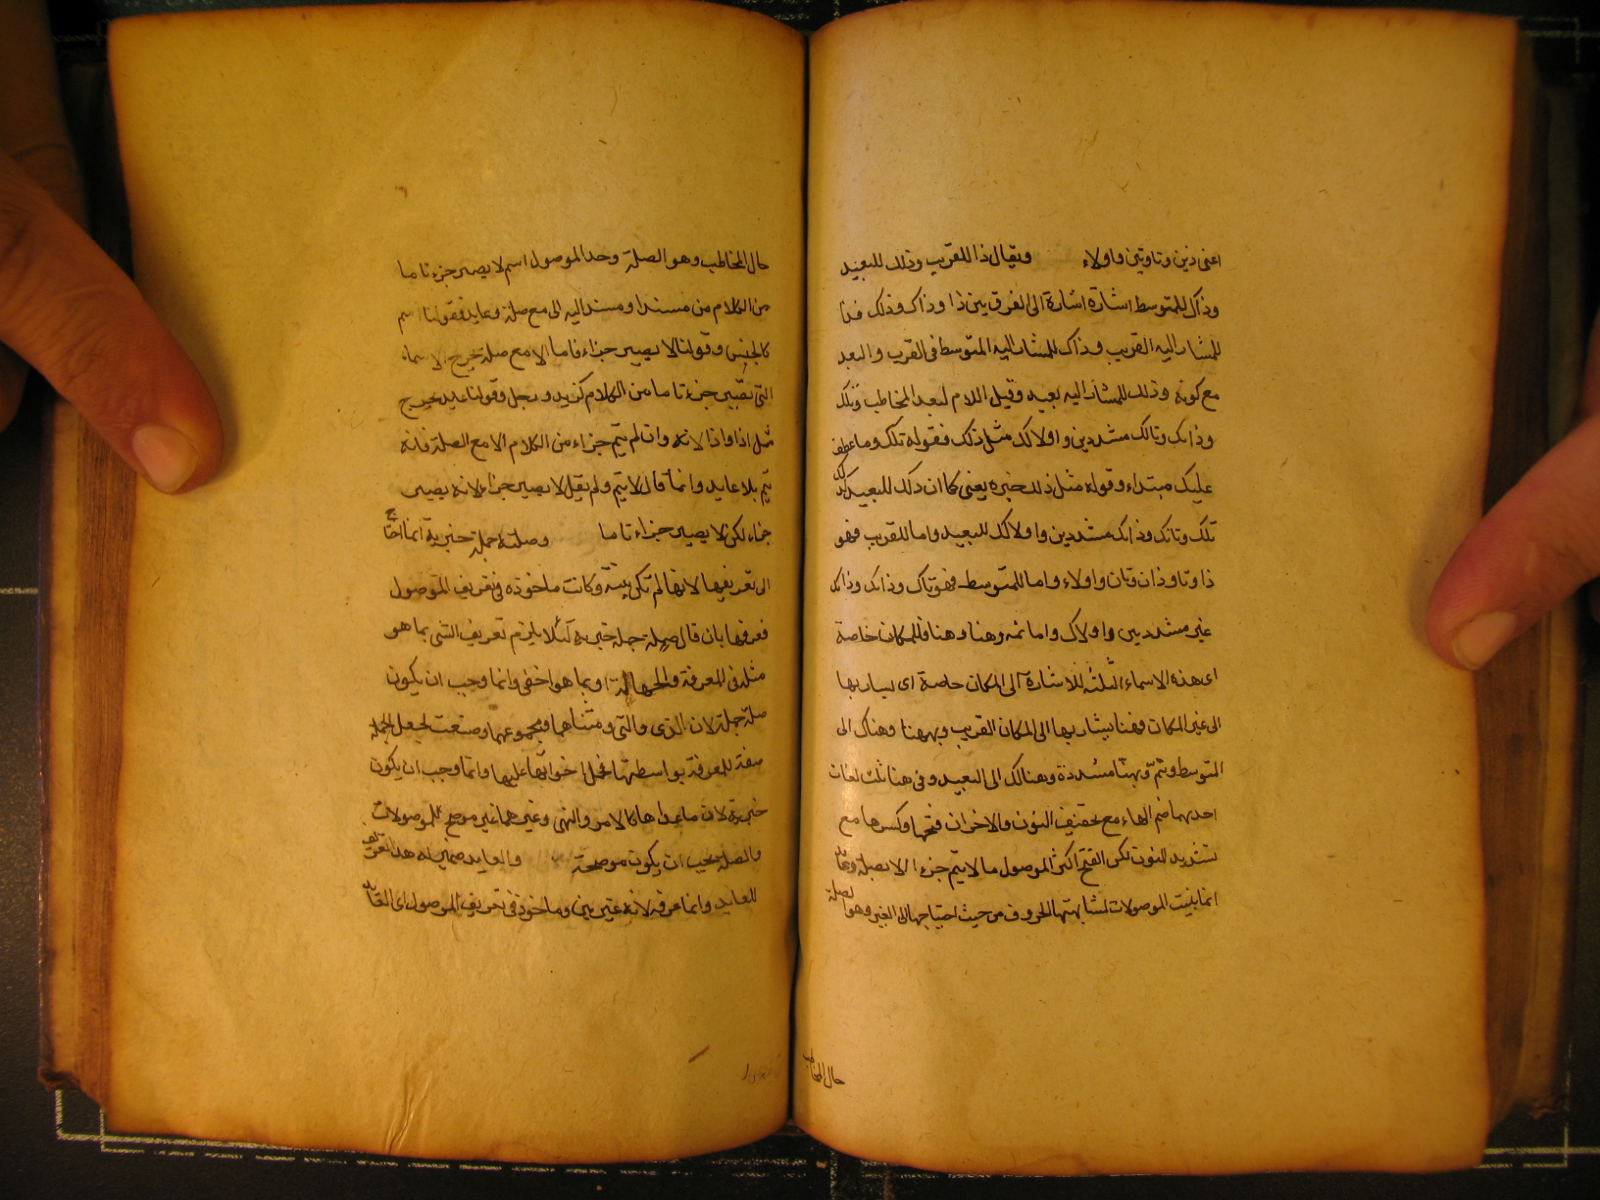 اعنى ذين وتا وتين واولاء ويقال ذا للقريب وذلك للبعيد
وذاك للمتوسط اشارة اشارة الى الفرق بين ذا وذاك وذلك فذا
للمشار اليه القريب وذاك للمشار اليه المتوسط فى القرب والبعد
مع كونه وذلك للمشار اليه بعيد وقيل اللام لبعد المخاطب وتلك
وذانك وتانك مشددين واولالك مثل ذلك فقوله تلك وما عطف
عليك مبتداء وقوله مثل ذلك خبره يعنى كما ان ذلك للبعيد كذلك
تلك وتانك وذانك مشددين واولالك للبعيد واما للقريب فهو
ذا وتا وذان وتان واولاء واما للمتوسط فهو تاك وذانك وذاك
غير مشددين واولاك واما ثمه وهنا وهنا فللمكان خاصة
اى هذه الاسماء الثلثه للاشارة الى المكان خاصة اى لا يشار بها
الى غير المكان فهنا يشار بها الى المكان القريب وبههنا وهناك الى
المتوسط وثم وبهنا مشددة وهنالك الى البعيد وفى هنا ثلث لغات
احديهما ضم الهاء مع تخفيف النون والاخران فتحها وكسرها مع
تشديد النون لكن الفتح اكثر الموصول ما لا يتم جزء الا بصلة وعائد
انما بنيت الموصولات لشابهتها الحروف من حيث احتياجها الى الغير وهو الصلة
حال المخاطب
حال المخاطب وهو الصلة وحد الموصول اسم لا يصير جزء تاما
من الكلام من مسندا ومسند اليه الى مع صلة وعايد فقولنا اسم
كالجنس وقولنا لا يصير جزاء تاما الا مع صلة يخرج الاسماء
التى تصير جزء تاما من الكلام كزيد ورجل وقولنا عايد يخرج
مثل اذا واذا لانه وان لم يتم جزاء من الكلام الا مع الصلة فانه
يتم بلا عايد وانما قال لا يتم ولم يقل لا يصير جزاء لانه يصير
جزاء لكن لا يصير جزاء تاما وصلته جملة خبرية انما احتاج
الى تعريفها لانها لم تكن بينة وكانت ماخوذه فى تعريف الموصول
فعرفها بان قال صلة جملة خبرية لئلا يلزم تعريف الشى بما هو
مثله فى المعرفة والجهالة او بما هو اخفى وانما وجب ان يكون
صلة جملة لان الذى والتى ومثناهما ومجموعهما وضعت لجعل الجملة
صفة للمعرفة بواسطتها فحمل اخواتها عليها وانما وجب ان يكون
خبرية لان ما عداها كالامر والنهى وغيرهما غير موضح للموصولات
والصلة يجب ان يكون موضحة والعايد ضمير له هذا تعريف
للعايد وانما عرفه لانه غير بين وماخوذ فى تعريف الموصول اى العائد